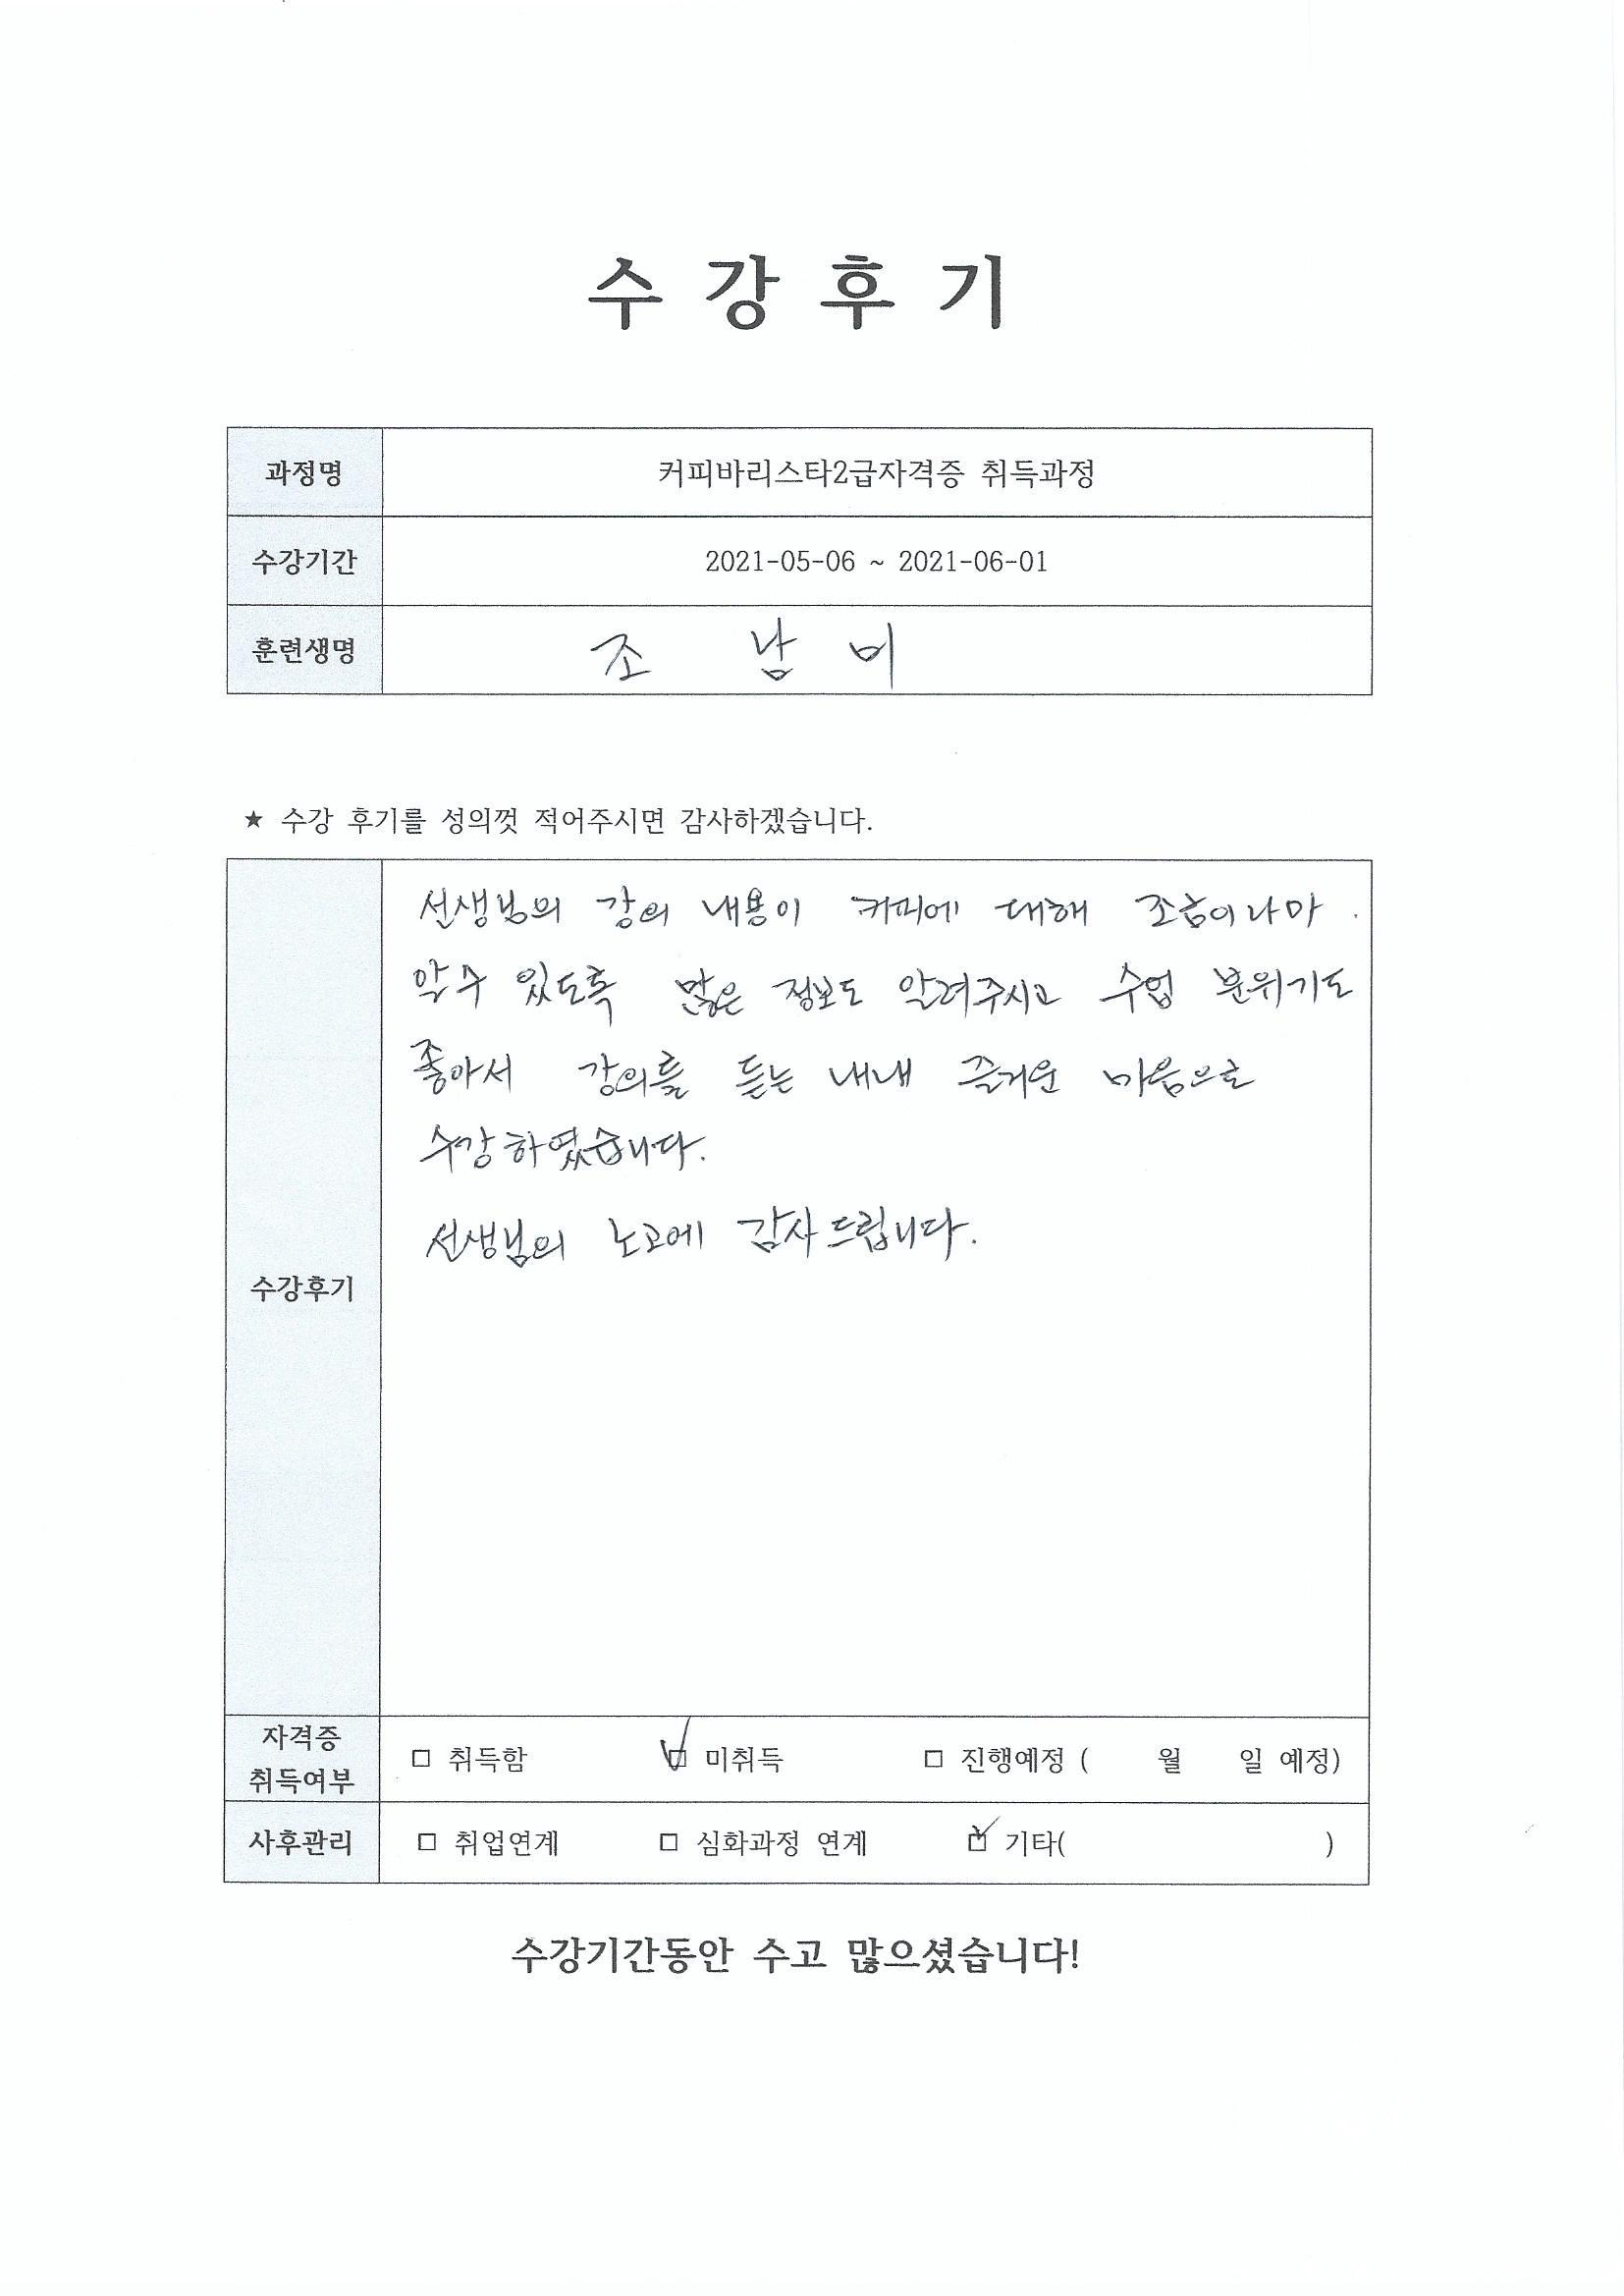 수 강 후 기
과정명 커피바리스타2급자격증 취득과정
수강기간 2021-05-06 ~ 2021-06-01
훈련생명 조 남 비
★ 수강 후기를 성의껏 적어주시면 감사하겠습니다.
수강후기
선생님의 강의 내용이 커피에 대해 조금이나마
알수 있도록 많은 정보도 알려주시고 수업 분위기도
좋아서 강의를 듣는 내내 즐거운 마음으로
수강하였습니다.
선생님의 노고에 감사드립니다.
자격증
취득여부
□ 취득함 ☑ 미취득 □ 진행예정 ( 월 일 예정)
사후관리 □ 취업연계 □ 심화과정 연계 ☑ 기타( )
수강기간동안 수고 많으셨습니다!